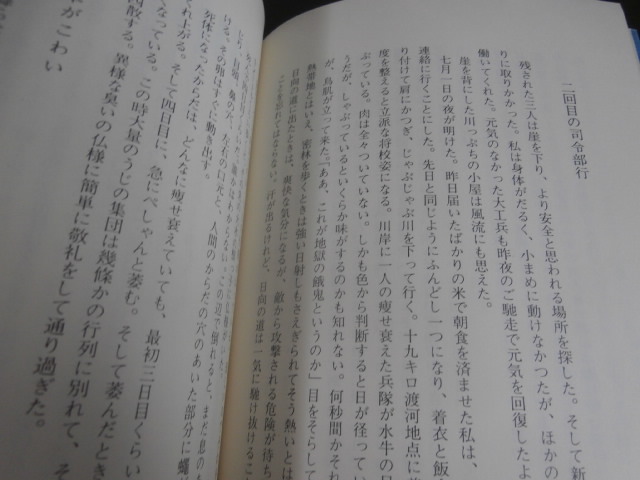 二回目の司令部行
残された三人は崖を下り、より安全と思われる場所を探した。そして新
りに取りかかった。私は身体がだるく、小まめに動けなかったが、ほかの
働いてくれた。元気のなかった大工兵も昨夜のご馳走で元気を回復したよ
崖を背にした川っぷちの小屋は風流にも思えた。
七月一日の夜が明けた。昨日届いたばかりの米で朝食を済ませた私は、
連絡に行くことにした。先日と同じようにふんどし一つになり、着衣と飯
り付けて肩にかつぎ、じゃぶじゃぶ川を下って行く。十九キロ渡河地点に
度を整えると立派な将校姿になる。川岸に一人の痩せ衰えた兵隊が水牛の
ぶっている。肉は全々ついていない。しかも色から判断すると日が径ってい
うだが、しゃぶっているといくらか味がするのかも知れない。何秒間かそれ
が、鳥肌が立って来た。「ああ、これが地獄の餓鬼というのか」目をそらして
熱帯地とはいえ、密林を歩くときは強い日射しもさえぎられてそう熱いとは
日向の道に出たときは、爽快な気分になるが、敵から攻撃される危険が待ち
ことを忘れてはならない。汗が出るけれど、日向の道は一気に馳け抜けること
この辺で倒れると、まだ息の
口元と、人間のからだの穴のあいた部分に蠅が
ける。その蛆はすぐに動き出す。
死体になったからだは、どんなに痩せ衰えていても、最初三日目くらい
くれ上がる。そして四日目に、急にぺしゃんと萎む。そして萎んだとき
なっている。この時大量のうじの集団は幾條かの行列に別れて、そ
四散する。異様な臭いの仏様に簡単に敬礼をして通り過ぎた。
がこわい